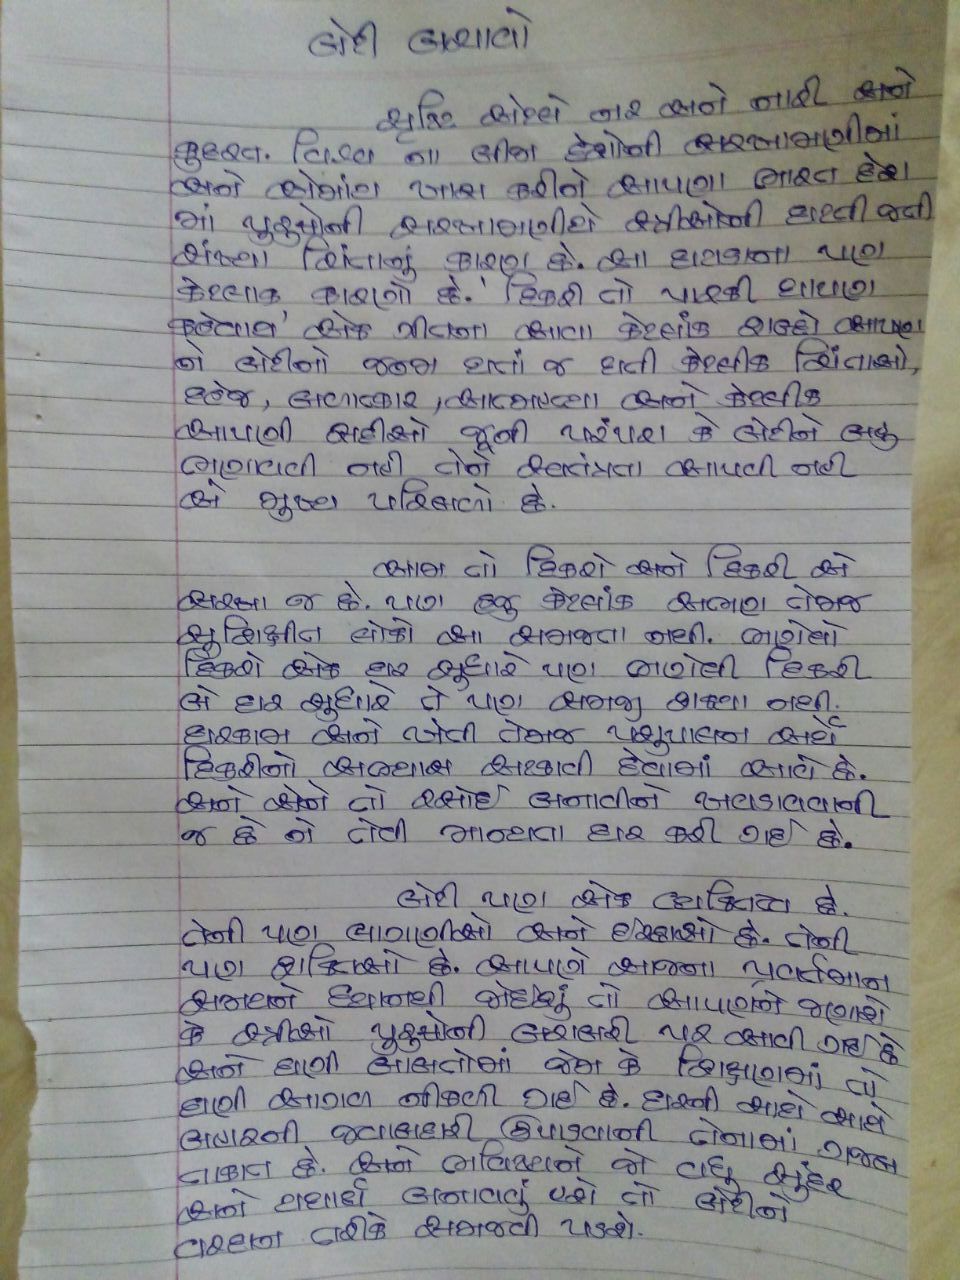 બેટી બચાવો
સૃષ્ટિ એટલે નર અને નારી અને
કુદરત. વિશ્વ ના બીજા દેશોની સરખામણીમાં
અને એમાંય ખાસ કરીને આપણા ભારત દેશ
માં પુરુષોની સરખામણીએ સ્ત્રીઓની ઘટતી જતી
સંખ્યા ચિંતાનું કારણ છે. આ ઘટાડાના પણ
કેટલાક કારણો છે. 'દિકરી તો પારકી થાપણ
કહેવાય' એક ગીતના આવા કેટલાંક શબ્દો આપણ
ને બેટીનો જન્મ થતાં જ થતી કેટલીક ચિંતાઓ,
દહેજ, બળાત્કાર, આત્મહત્યા અને કેટલીક
આપણી સદીઓ જૂની પરંપરા કે બેટીને બહુ
ભણાવવી નહી તેને સ્વતંત્રતા આપવી નહી
એ મુખ્ય પરિબળો છે.
આમ તો દિકરો અને દિકરી એ
સરખા જ છે. પણ હજુ કેટલાંક અભણ તેમજ
સુશિક્ષીત લોકો આ સમજતા નથી. ભણેલો
દિકરો એક ઘર સુધારે પણ ભણેલી દિકરી
બે ઘર સુધારે તે પણ સમજી શક્યા નથી.
ઘરકામ અને ખેતી તેમજ પશુપાલન અર્થે
દિકરીનો અભ્યાસ અટકાવી દેવામાં આવે છે.
અને એને તો રસોઈ બનાવીને ખવડાવવાની
જ છે ને તેવી માન્યતા ઘર કરી ગઈ છે.
બેટી પણ એક વ્યક્તિત્વ છે.
તેની પણ લાગણીઓ અને ઈચ્છાઓ છે. તેની
પણ શક્તિઓ છે. આપણે આજના પ્રવર્તમાન
સમયને ધ્યાનથી જોઈશું તો આપણને જણાશે
કે સ્ત્રીઓ પુરુષોની બરાબરી પર આવી ગઈ છે
અને ઘણી બાબતોમાં જેમ કે શિક્ષણમાં તો
ઘણી આગળ નીકળી ગઈ છે. ઘરની સાથે સાથે
બહારની જવાબદારી ઉપાડવાની તેનામાં ગજબ
તાકાત છે. અને ભવિષ્યને જો વધુ સુંદર
અને યથાર્થ બનાવવું હશે તો બેટીને
વરદાન તરીકે સમજવી પડશે.